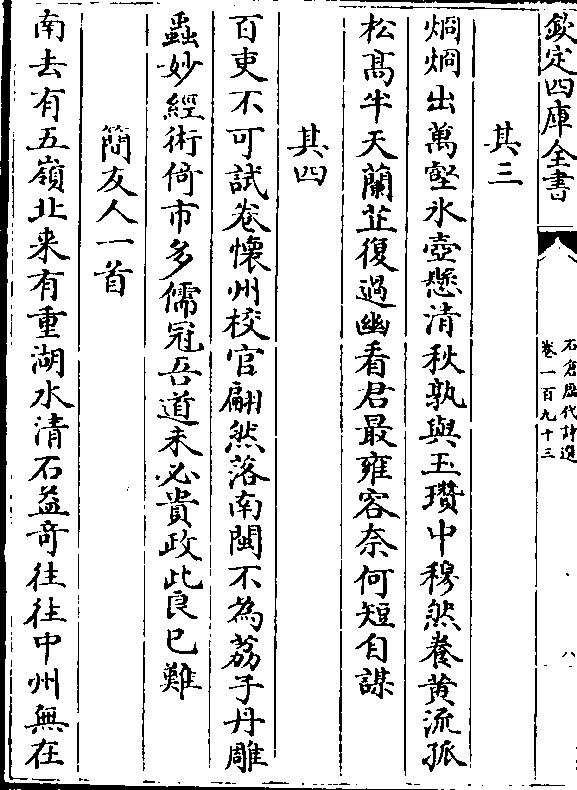 欽定四庫全書
石倉歷代詩選
卷一百九十三
八
其三
烱烱出萬壑氷壺懸清秋孰與玉瓚中穆然養黄流孤
松髙半天蘭芷復過幽看君最雍容奈何短自謀
其四
百吏不可試卷懷州校官翩然落南閩不為荔子丹雕
蟲妙經術倚市多儒冠吾道未必貴政此良已難
簡友人一首
南去有五嶺北来有重湖水清石益竒往往中州無在